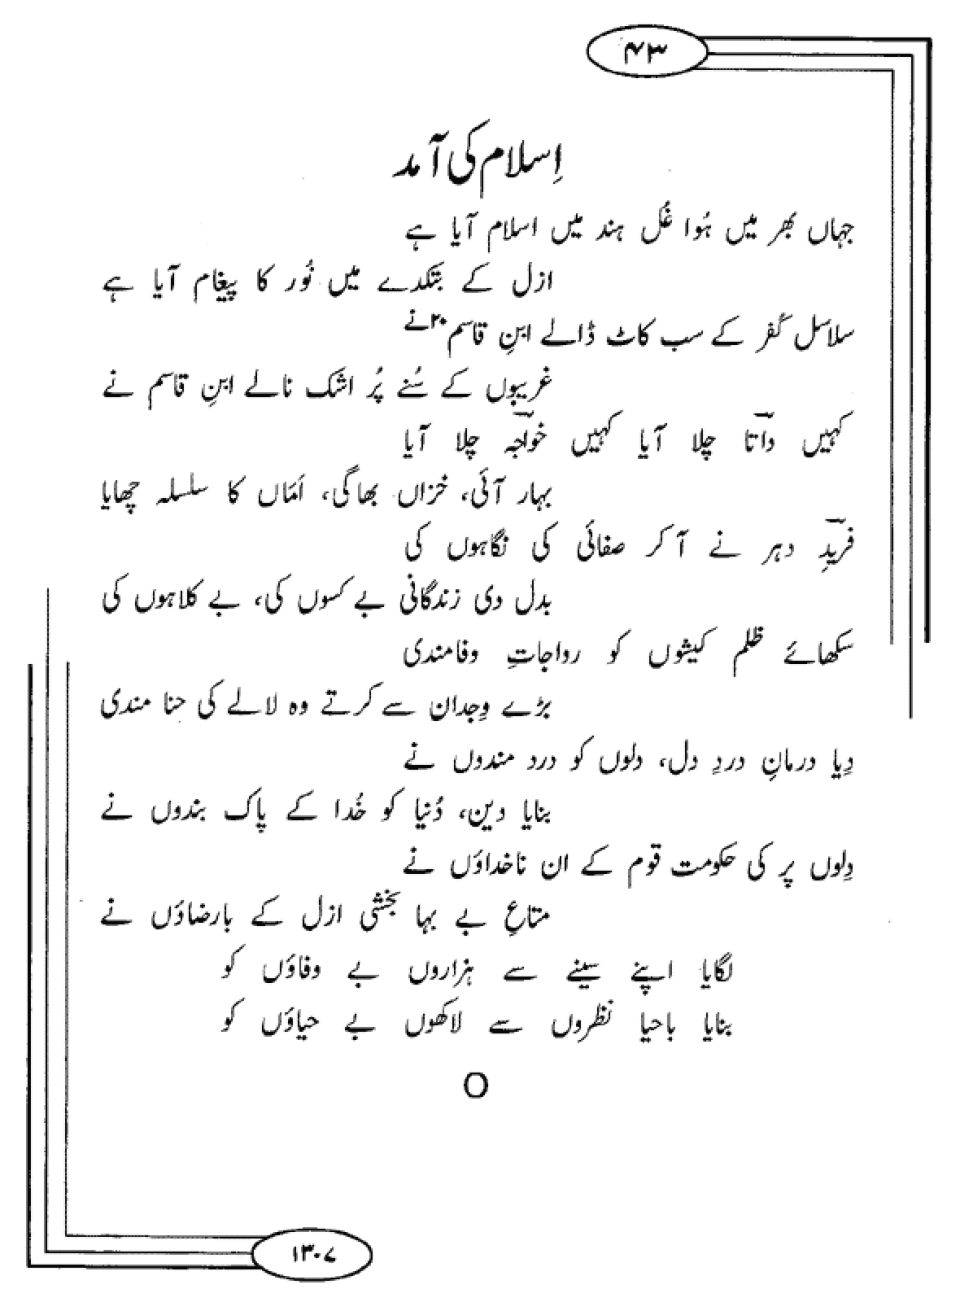 ۴۳
اِسلام کی آمد
جہاں بھر میں ہُوا غُل ہند میں اسلام آیا ہے
ازل کے بتکدے میں نُور کا پیغام آیا ہے
سلاسل کُفر کے سب کاٹ ڈالے ابنِ قاسم۲۰ نے
غریبوں کے سُنے پُر اشک نالے ابنِ قاسم نے
کہیں داتاؒ چلا آیا کہیں خواجہؒ چلا آیا
بہار آئی، خزاں بھاگی، اَمّاں کا سلسلہ چھایا
فریدِؒ دہر نے آ کر صفائی کی نگاہوں کی
بدل دی زندگانی بے کسوں کی، بے کلاہوں کی
سکھائے ظلم کیشوں کو رواجاتِ وفامندی
بڑے وِجدان سے کرتے وہ لالے کی حنا مندی
دِیا درمانِ دردِ دل، دلوں کو درد مندوں نے
بنایا دین، دُنیا کو خُدا کے پاک بندوں نے
دِلوں پر کی حکومت قوم کے ان ناخداؤں نے
متاعِ بے بہا بخشی ازل کے بارضاؤں نے
لگایا اپنے سینے سے ہزاروں بے وفاؤں کو
بنایا باحیا نظروں سے لاکھوں بے حیاؤں کو
O
۱۳۰۷